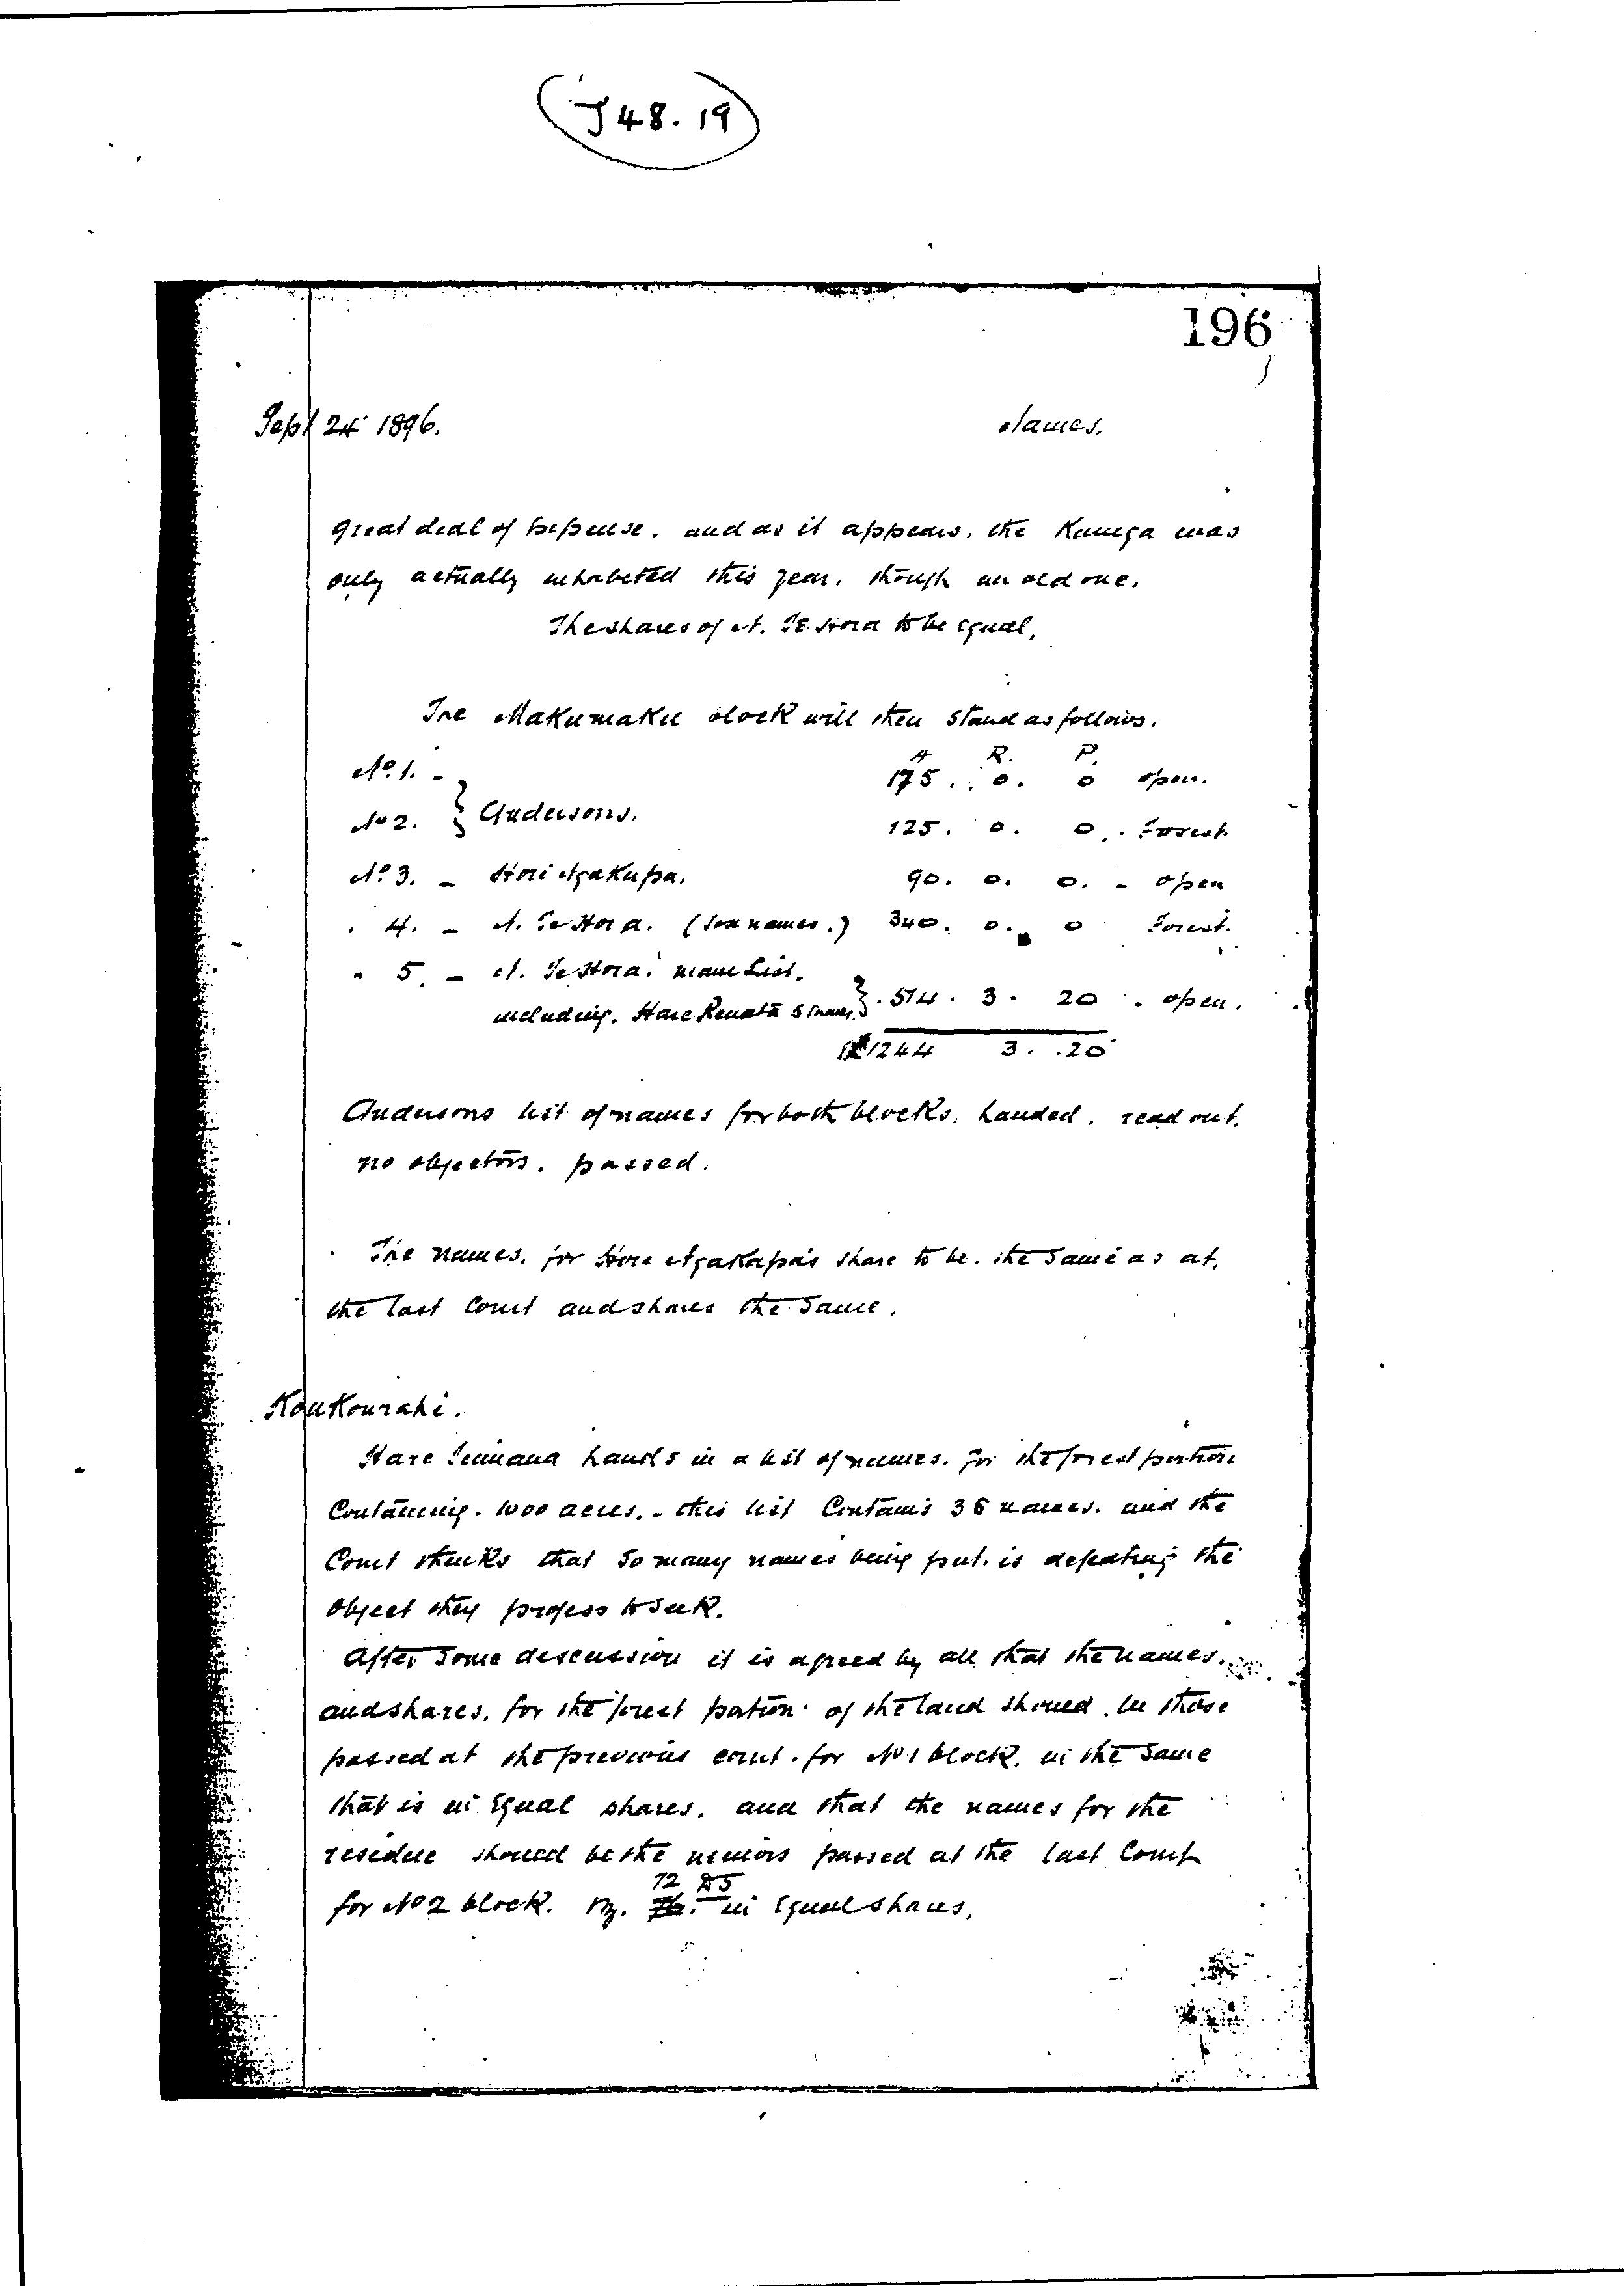 J 48. 19
196
Sept 24 1896.
Names.
great deal of Expense. and as it appears, the Kainga was
only actually inhabited this year. though an old one.
The shares of N. Te Hora to be equal.
The Makumaku block will then stand as follows.
A R. P.
No. 1. - 175. 0. 0 open.
No 2. } Andersons. 125. 0. 0. Forest.
No. 3. - Hori Ngakapa. 90. 0. 0. - open
" 4. - N. Te Hora. (ten names.) 340. 0. 0 Forest.
" 5. - N. Te Hora. main List.
including. Hare Renata } 514. 3. 20. open.
1244 3. 20
Andersons list of names for both blocks. handed. read out.
no objectors. passed.
The names. for Hori Ngakapa's share to be. the same as at.
the last Court and shares the same.
Koukourahi.
Hare Teimana hands in a list of names. for the forest portion
Containing. 1000 acres. - this list Contains 36 names. and the
Court thinks that so many names being put. is defeating the
object they profess to seek.
After some discussion it is agreed by all that the names.
and shares. for the forest portion of the land should. be those
passed at the previous court. for No 1 block. in the same
that is in Equal shares. and that the names for the
residue should be the passed at the last Court
for No 2 block. 72 in Equal shares.